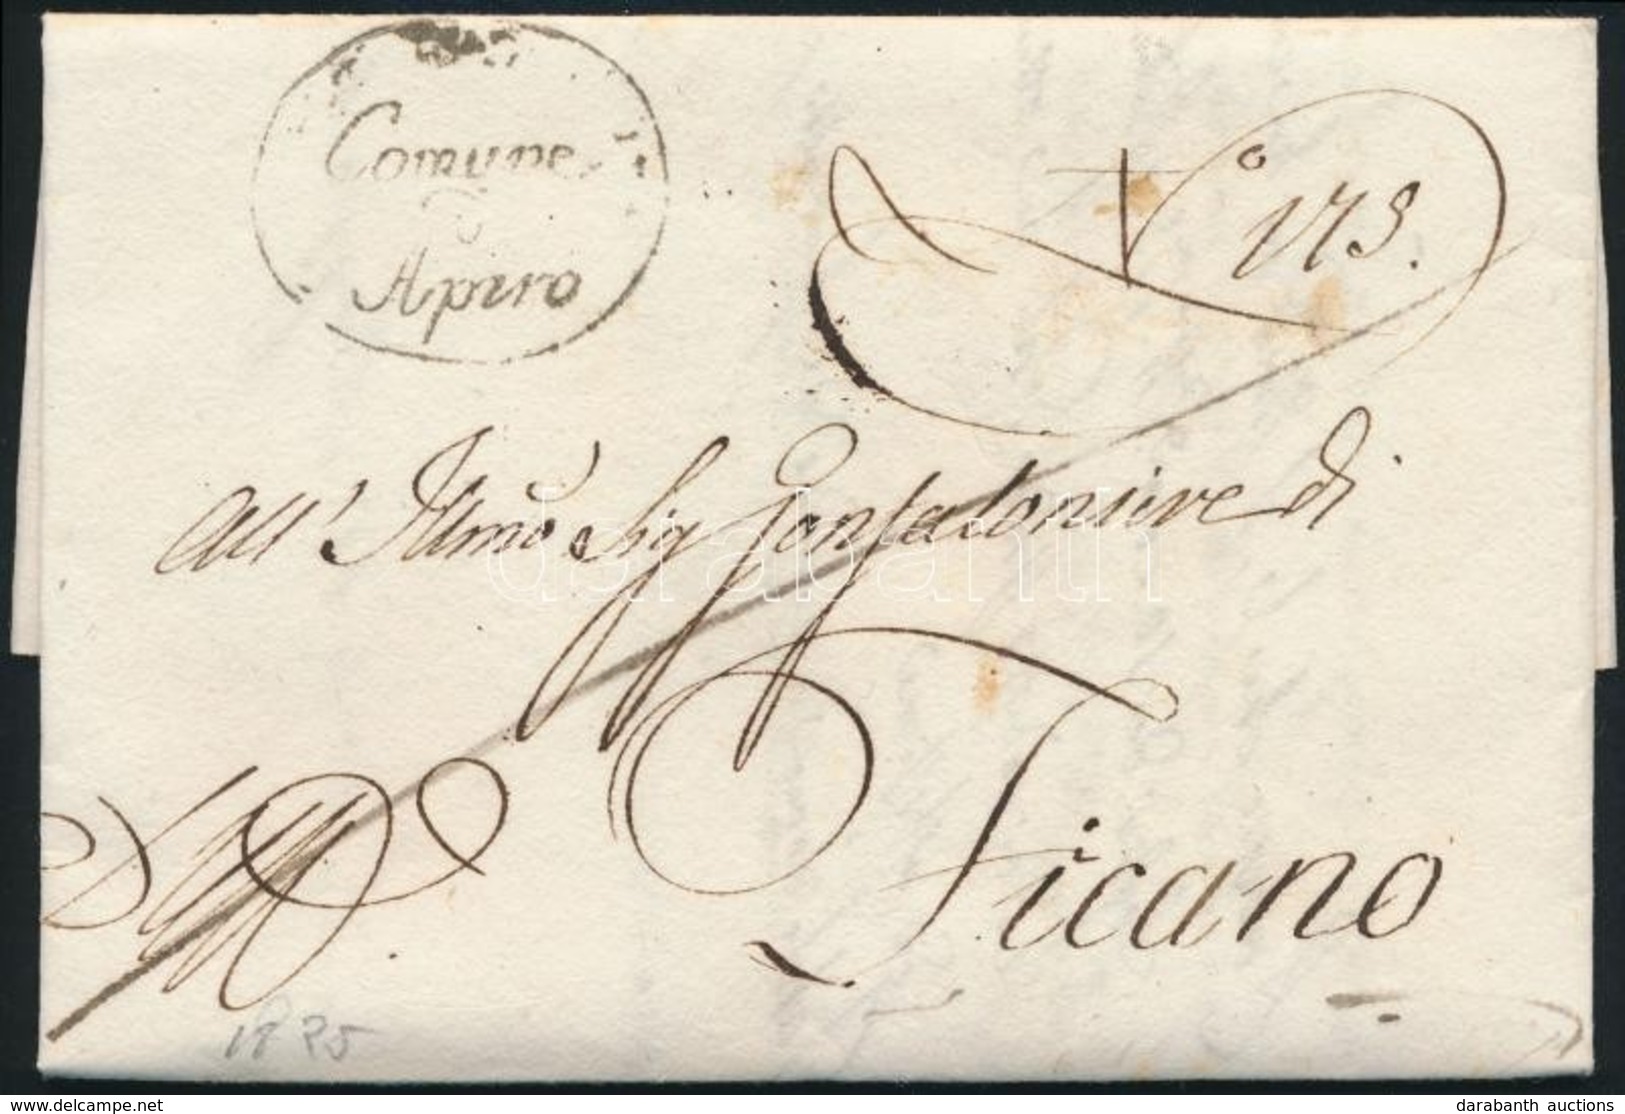 Comune
Apiro
N° 173.
all' Illmo Sig Gonfaloniere di
Ficano
1825
darabanth
© delcampe.net
darabanth auctions